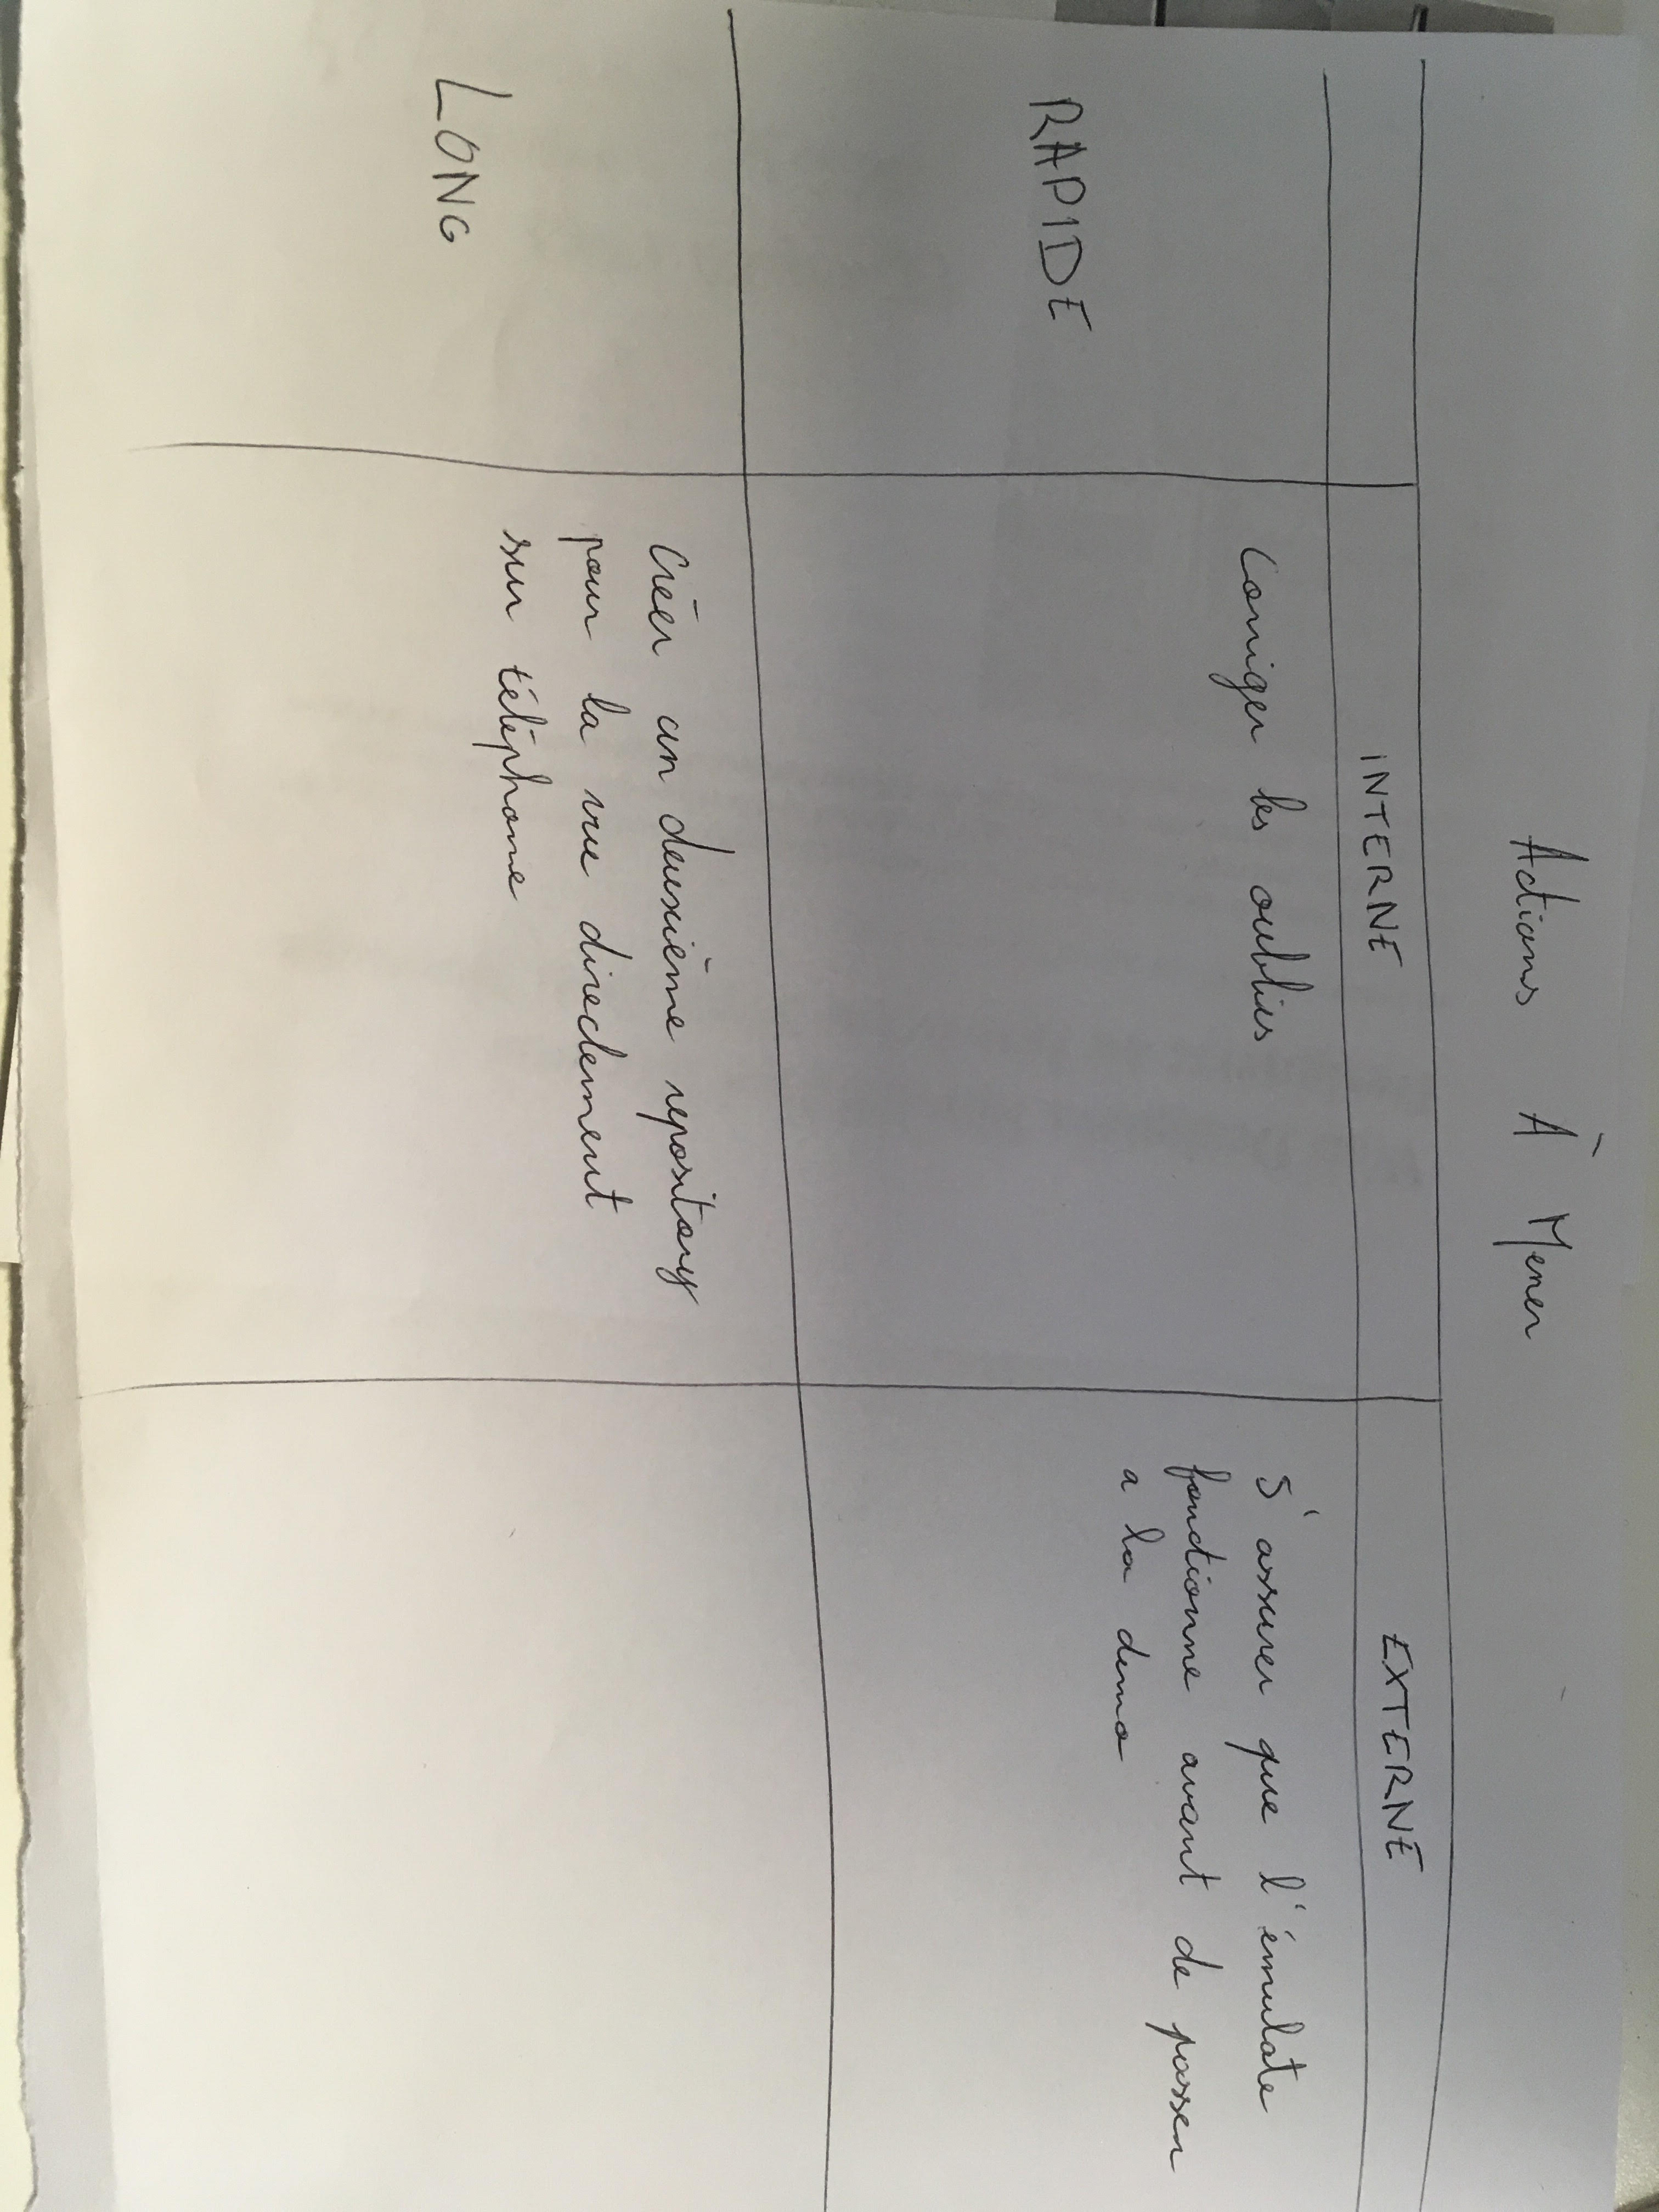 Actions À Mener
INTERNE EXTERNE
RAPIDE
Corriger les oublies
S'assurer que l'émulate
fonctionne avant de passer
a la demo
LONG
Créer un deuxième repository
pour la vue directement
sur téléphone